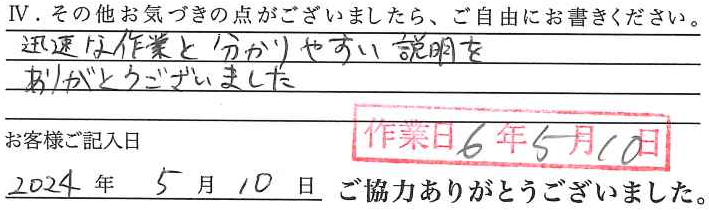 Ⅳ．その他お気づきの点がございましたら、ご自由にお書きください。
迅速な作業と分かりやすい説明を
ありがとうございました
お客様ご記入日
作業日6年5月10日
2024年 5月10日 ご協力ありがとうございました。